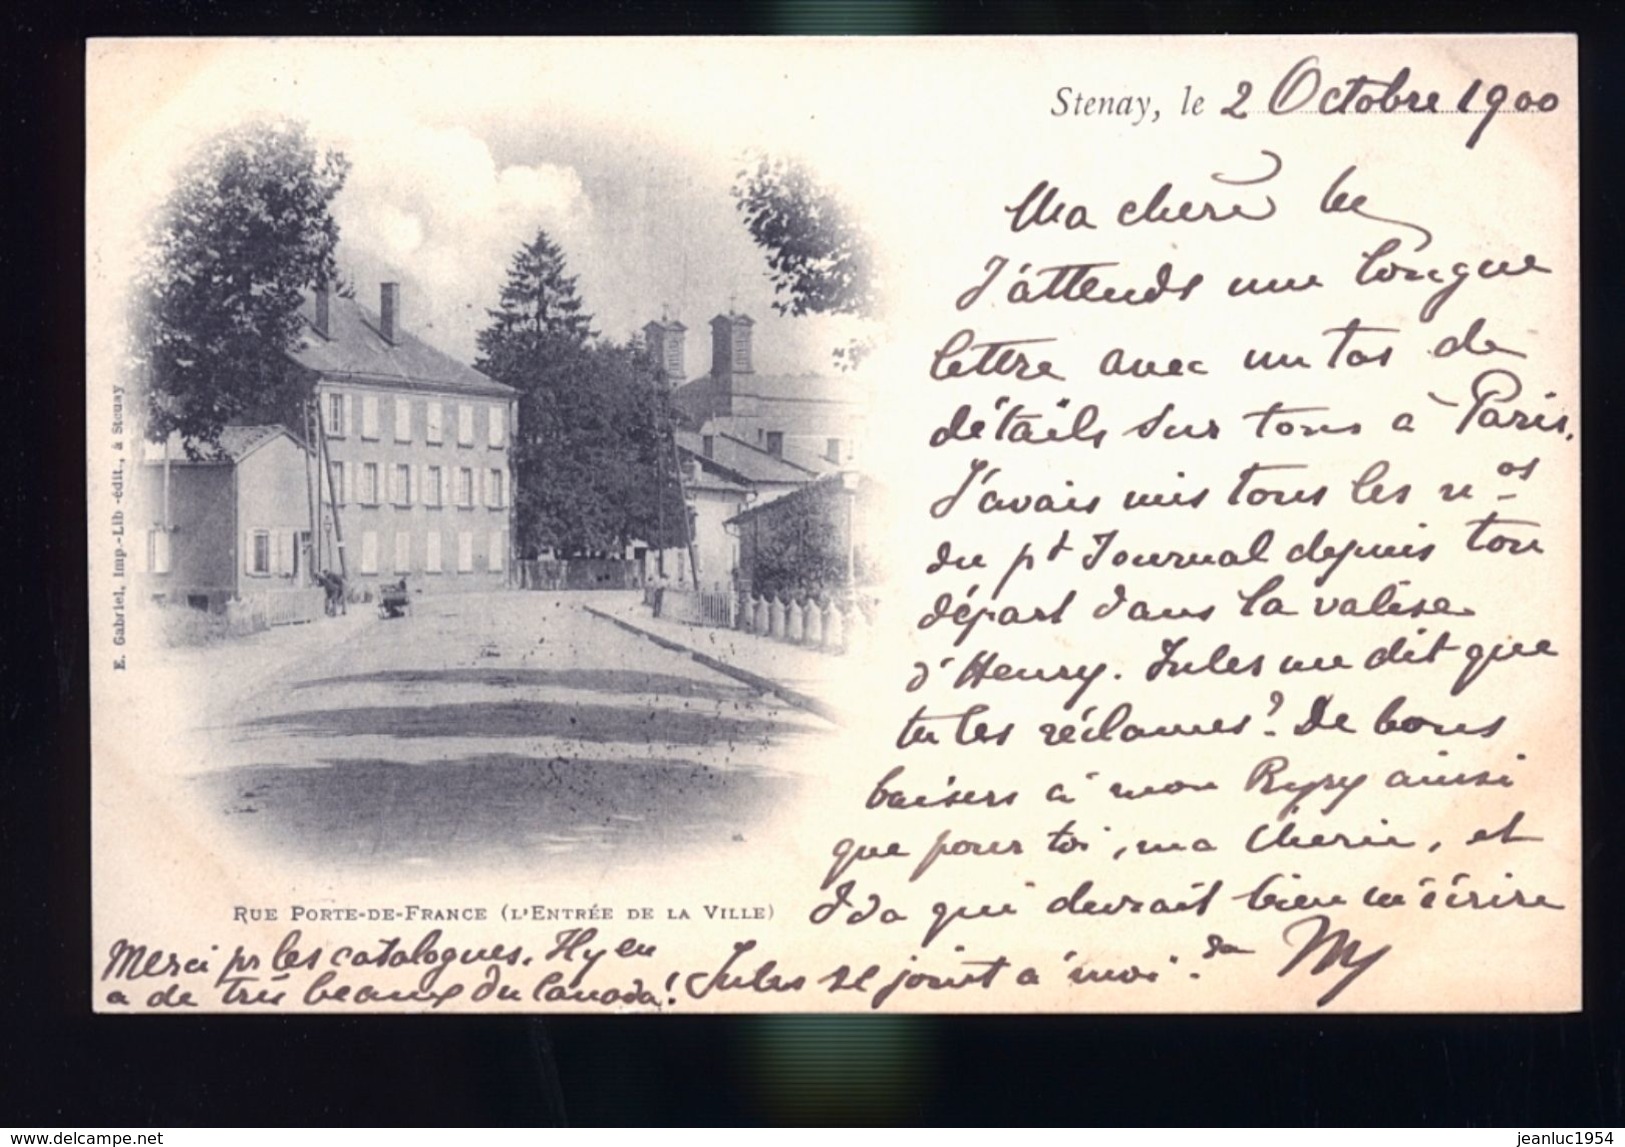 Stenay, le 2 Octobre 1900
Ma chère
J'attends une longue
lettre avec un tas de
détails sur tous à Paris.
J'avais mis tous les nos
du pt Journal depuis ton
départ dans la valise
d'Henry. Jules me dit que
tu les réclames? De bons
baisers à mon Ryry ainsi
que pour toi, ma Cherie, et
Ida qui devrait bien m'écrire
Jules se joint à moi. Ta My
E. Gabriel, Imp.-Lib.-édit., à Stenay
RUE PORTE-DE-FRANCE (L'ENTRÉE DE LA VILLE)
Merci pr les catalogues. Il y en
a de très beaux du Canada!
www.delcampe.net
jeanluc1954